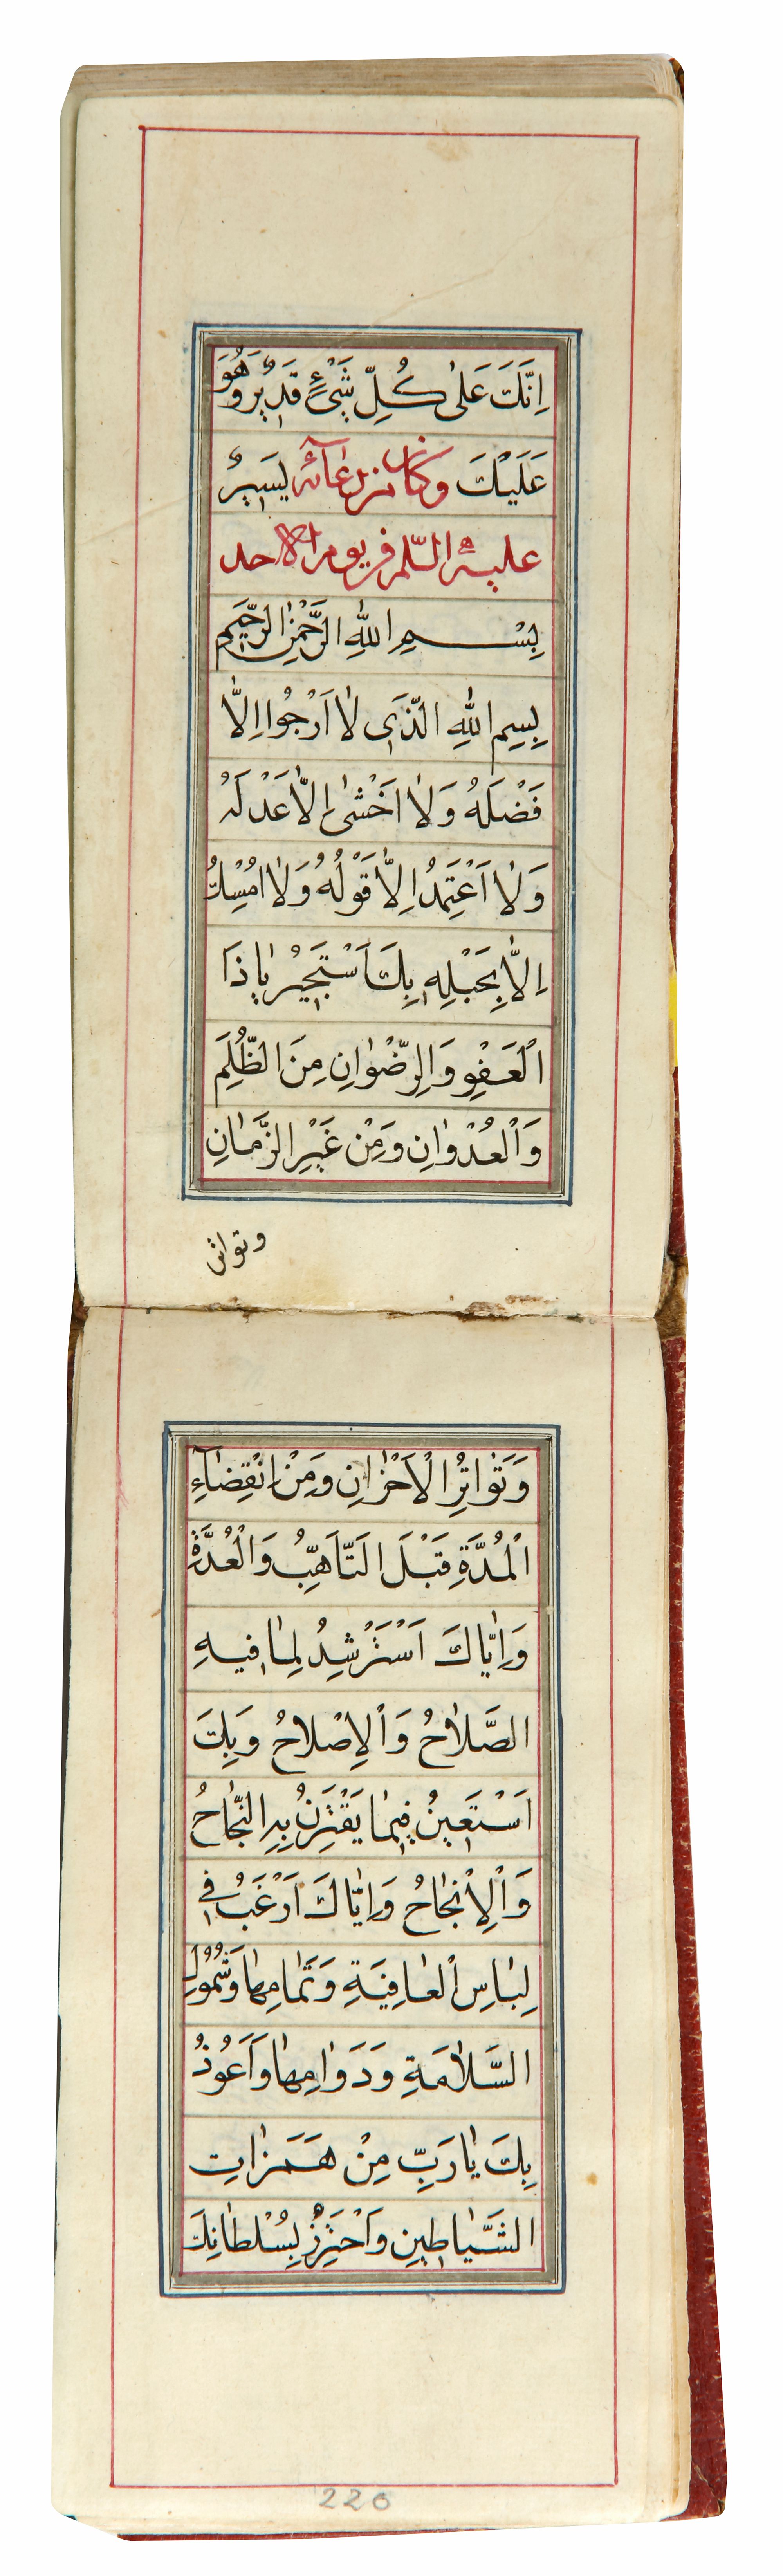 اِنَّكَ عَلىٰ كُلِّ شَیْءٍ قَدیٖرٌ وَهُوَ
عَلَیْكَ وكان من دعائه یَسیٖرٌ
علیه السّلم فی یوم الاحد
بِسْمِ اللهِ الرَّحْمٰنِ الرَّحیٖمِ
بِسِمِ اللهِ الَّذَیٖ لٰا اَرْجُوا اِلّٰا
فَضْلَهُ وَلٰا اَخْشىٰ اِلّٰا عَدْلَهُ
وَلٰا اَعْتَمِدُ اِلّٰا قَوْلُهُ وَلٰا اُمْسِكُ
اِلّٰا بِحَبْلِهِ بِكَ اَسْتَجیٖرُ یٰا ذَا
الْعَفْوِ وَالرِّضْوٰانِ مِنَ الظُّلِمَ
وَالْعُدْوٰانِ وَمِنْ غَیْرِ الزَّمٰانِ
وتواتر
وَتَوٰاتِرُ الْاَحْزٰانِ وَمِنْ اِنْقِضٰاۤءِ
الْمُدَّةِ قَبْلَ التَّاَهُّبِ وَالْعُدَّةِ
وَاِیّٰاكَ اَسْتَرْشِدُ لِمٰا فیٖهِ
الصَّلٰاحُ وَالْاِصْلٰاحُ وَبِكَ
اَسْتَعیٖنُ فیٖمٰا یَقْتَرِنُ بِهِ النَّجٰاحُ
وَالْاِنْجٰاحُ وَاِیّٰاكَ اَرْغَبُ فیٖ
لِبٰاسِ الْعٰافِیَةِ وَتَمٰامِهٰا وَشُمُولِ
السَّلٰامَةِ وَدَوٰامِهٰا وَاَعُوذُ
بِكَ یٰا رَبِّ مِنْ هَمَزٰاتِ
الشَّیٰاطیٖنِ وَاَحْتَرِزُ بِسُلْطٰانِكَ
220